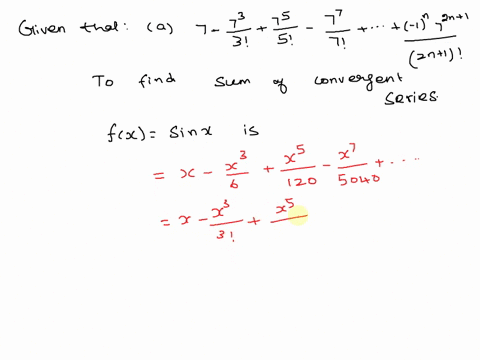 Given that: (a) 7 - 7^3/3! + 7^5/5! - 7^7/7! + ... + (-1)^n 7^(2n+1)/(2n+1)!
To find sum of convergent series
f(x) = sinx is
= x - x^3/6 + x^5/120 - x^7/5040 + ....
= x - x^3/3! + x^5